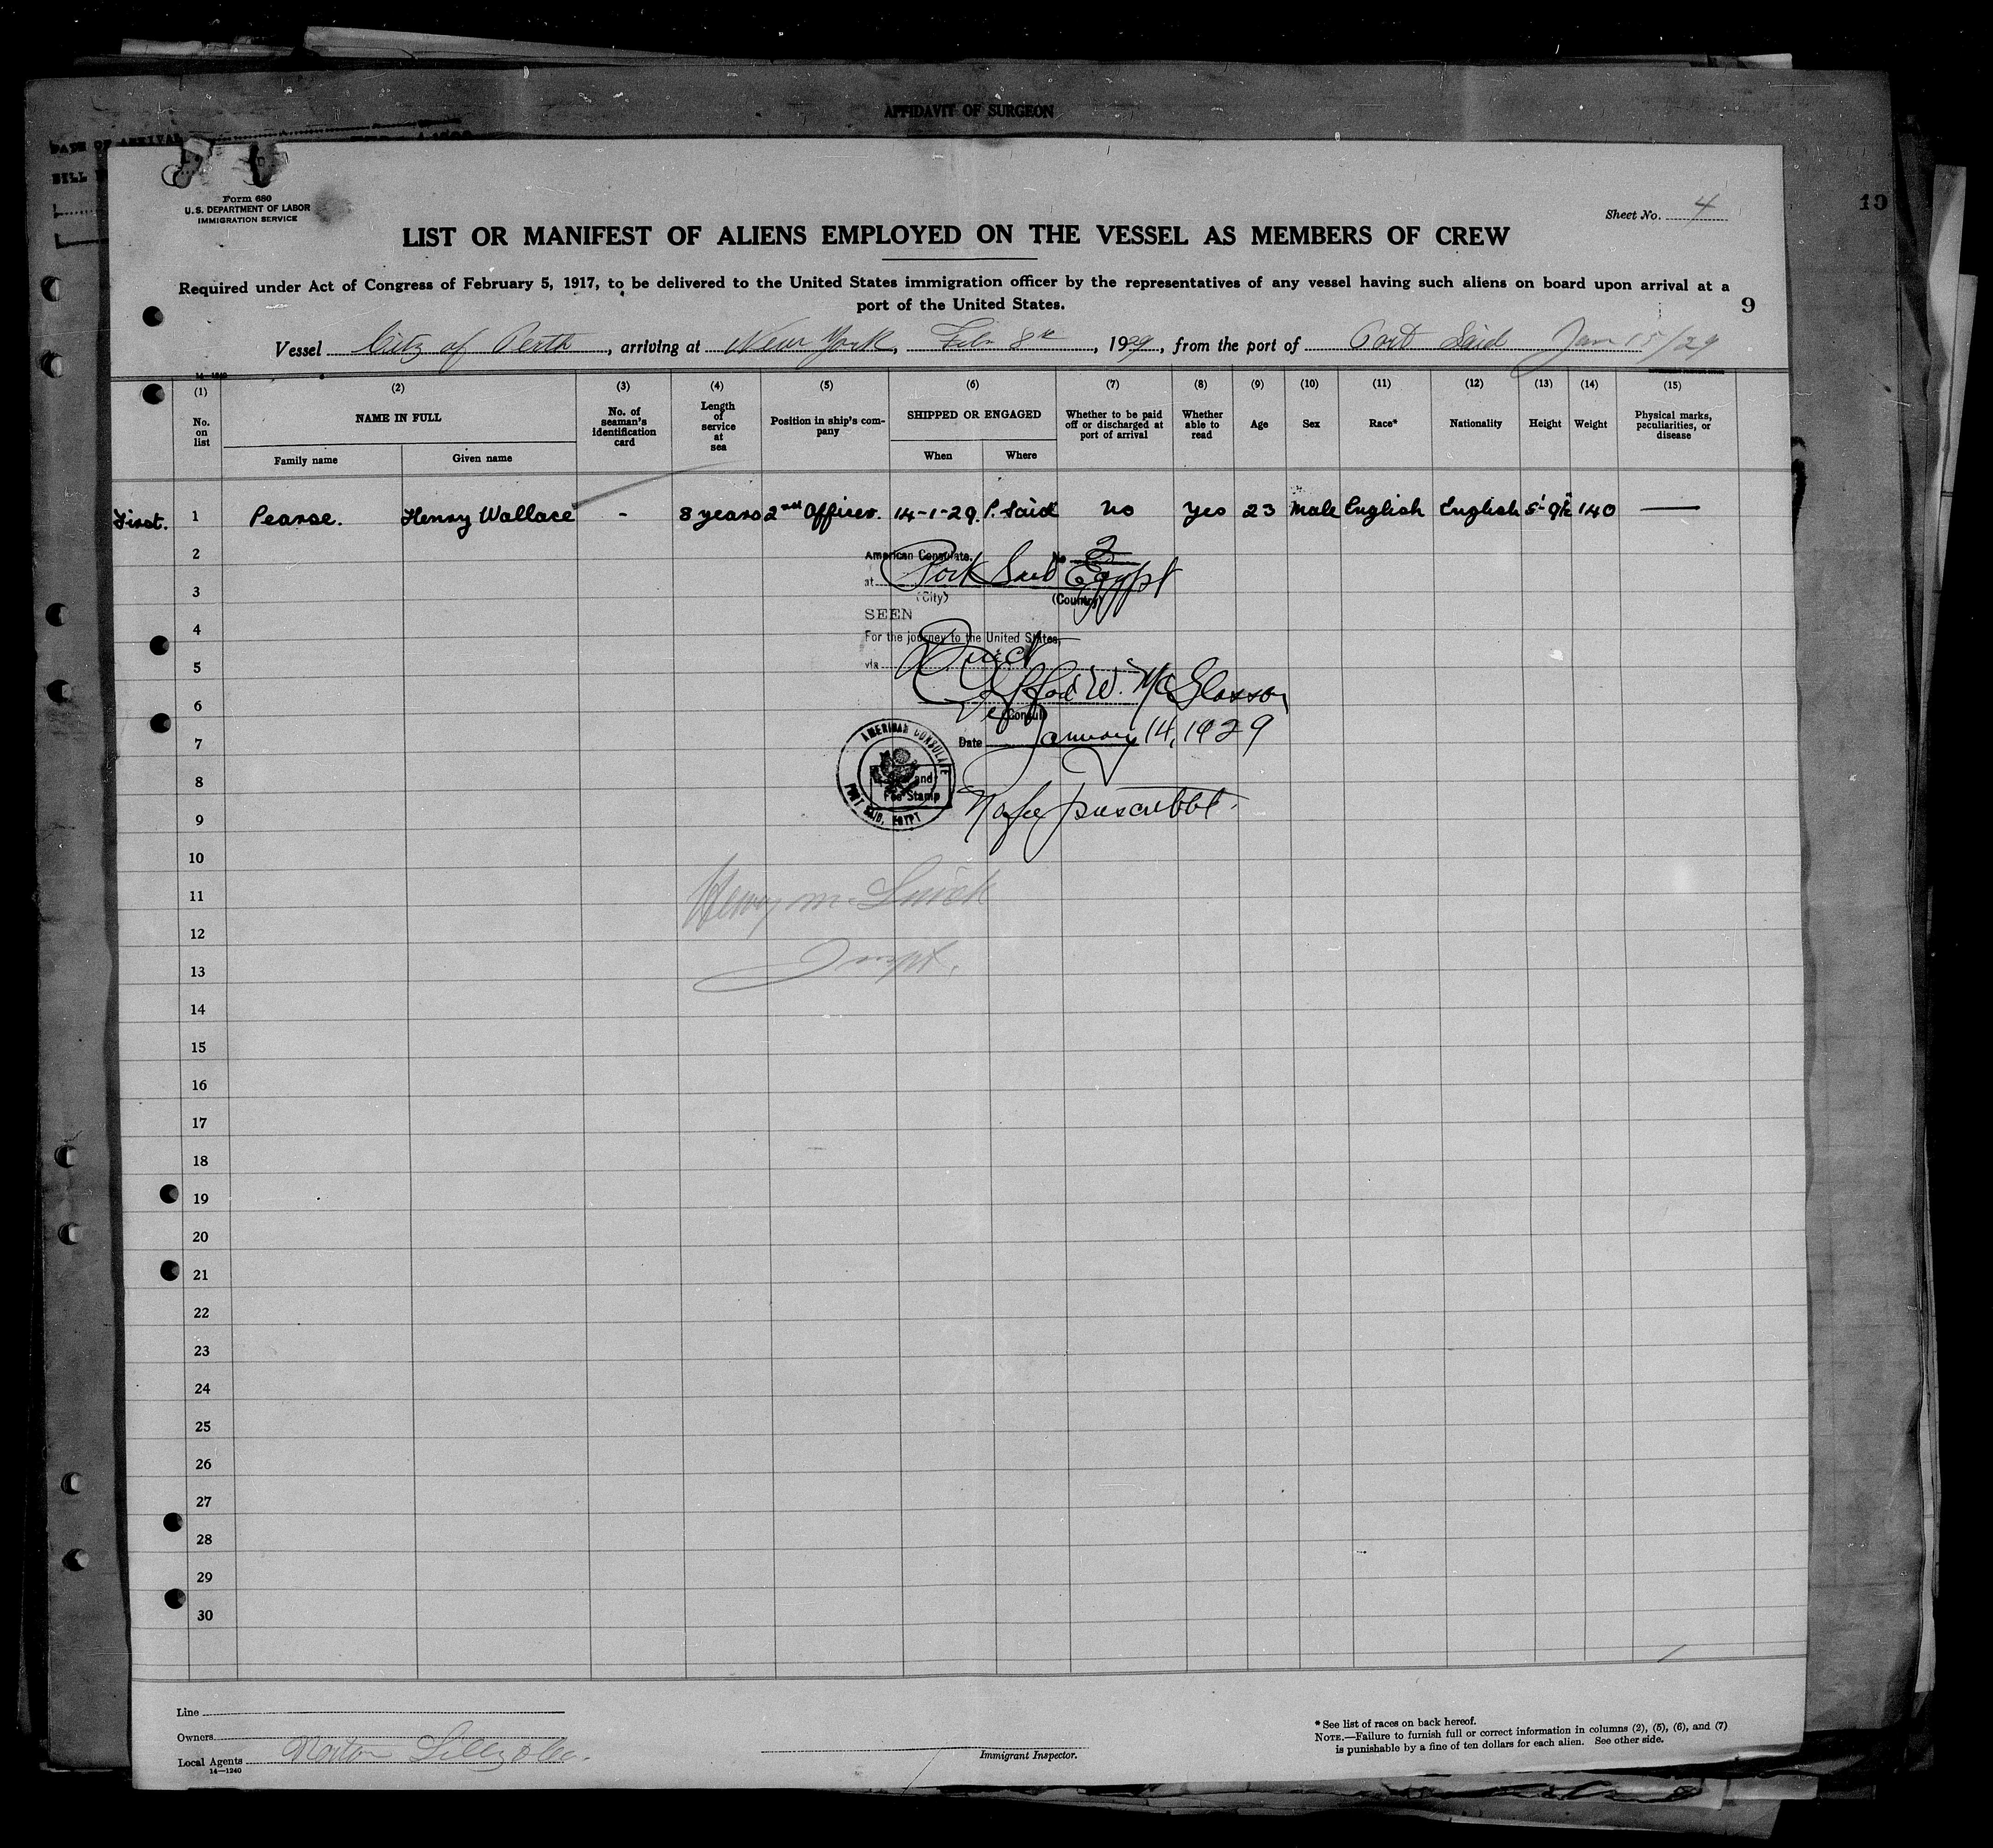 AFFIDAVIT OF SURGEON
DATE OF ARRIVAL
10
Form 680
U.S. DEPARTMENT OF LABOR
IMMIGRATION SERVICE
Sheet No. 4
LIST OR MANIFEST OF ALIENS EMPLOYED ON THE VESSEL AS MEMBERS OF CREW
Required under Act of Congress of February 5, 1917, to be delivered to the United States immigration officer by the representatives of any vessel having such aliens on board upon arrival at a
port of the United States.
9
Vessel City of Perth, arriving at New York, Feb 8th, 1929, from the port of Port Said Jan 15/29
(1) (2) (3) (4) (5) (6) (7) (8) (9) (10) (11) (12) (13) (14) (15)
No. on list NAME IN FULL No. of seaman's identification card Length of service at sea Position in ship's company SHIPPED OR ENGAGED Whether to be paid off or discharged at port of arrival Whether able to read Age Sex Race* Nationality Height Weight Physical marks, peculiarities, or disease
Family name Given name When Where
First. 1 Pearse. Henry Wallace - 8 years 2nd Officer. 14-1-29. P. Said No Yes 23 Male English English 5'-9½" 140 —
2
American Consulate, No 2
at Port Said Egypt
3
(City) (Country)
SEEN
4
For the journey to the United States,
5
via Direct
6
W. McGlasson
(Consul)
7
Date January 14, 1929
AMERICAN CONSULATE
PORT SAID, EGYPT
8
and
Fee Stamp
No fee prescribed.
9
10
11
Henry M.
12
13
14
15
16
17
18
19
20
21
22
23
24
25
26
27
28
29
30
Line
Owners
Local Agents Norton Lilly & Co.
14—1240
Immigrant Inspector.
* See list of races on back hereof.
NOTE.—Failure to furnish full or correct information in columns (2), (5), (6), and (7)
is punishable by a fine of ten dollars for each alien. See other side.